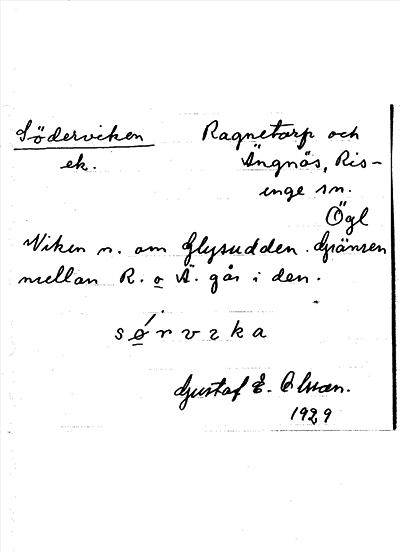 Söderviken
ek.
Ragnetorp och
Ängnäs, Ris-
inge sn.
Ögl
Viken n. om Glysudden. Gränsen
mellan R. o Ä. går i den.
sǿrvɩka
Gustaf E. Olsson.
1929